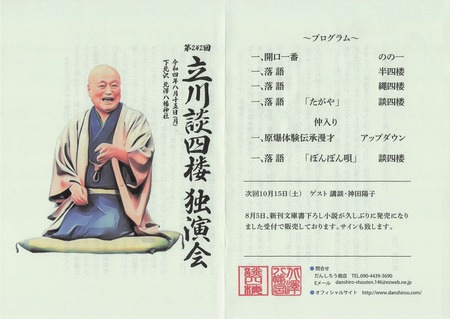 第242回
立川談四楼 独演会
令和四年八月十五日(月)
下北沢 北澤八幡神社
〜プログラム〜
一、開口一番 のの一
一、落語 半四楼
一、落語 縄四楼
一、落語 「たがや」 談四楼
仲入り
一、原爆体験伝承漫才 アップダウン
一、落語 「ぼんぼん唄」 談四楼
次回10月15日(土) ゲスト 講談・神田陽子
8月5日、新刊文庫書下ろし小説が久しぶりに発売になり
ました受付で販売しております。サインも致します。
●問合せ
だんしろう商店 TEL.090-4439-3690
Eメール danshiro-shouten.146@ezweb.ne.jp
●オフィシャルサイト http://www.danshirou.com/